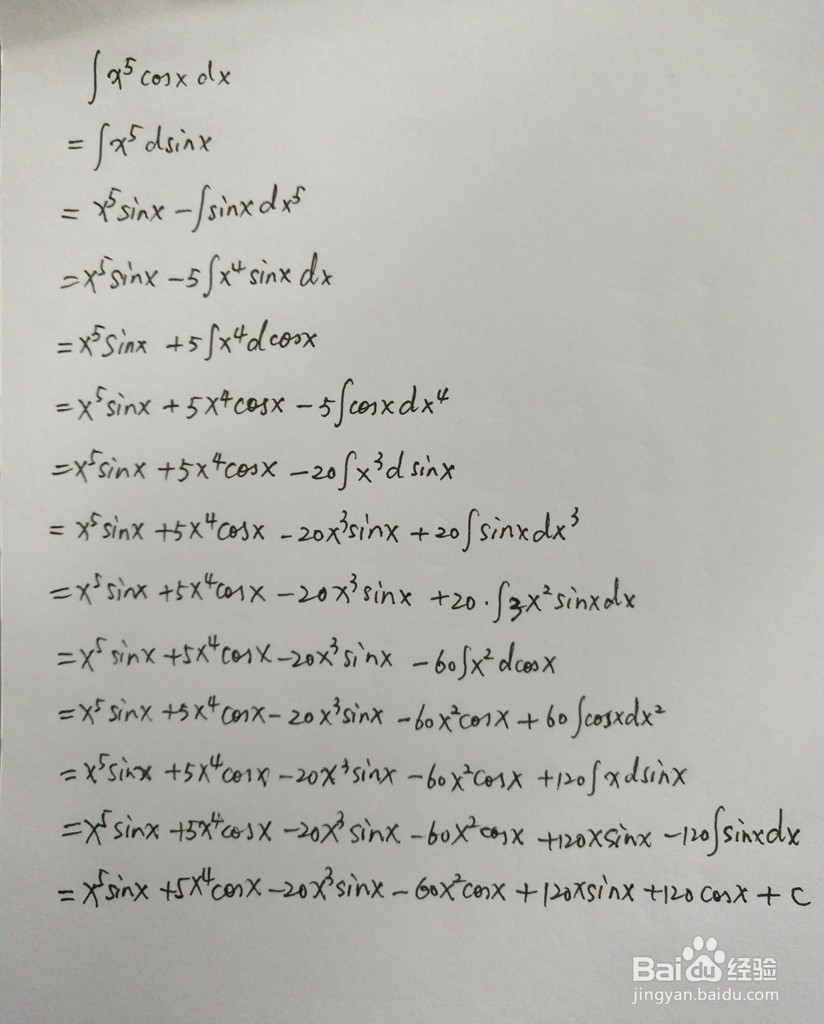 ∫x⁵cosx dx
= ∫x⁵dsinx
= x⁵sinx - ∫sinxdx⁵
= x⁵sinx - 5∫x⁴sinx dx
= x⁵sinx + 5∫x⁴dcosx
= x⁵sinx + 5x⁴cosx - 5∫cosxdx⁴
= x⁵sinx + 5x⁴cosx - 20∫x³dsinx
= x⁵sinx + 5x⁴cosx - 20x³sinx + 20∫sinxdx³
= x⁵sinx + 5x⁴cosx - 20x³sinx + 20·∫3x²sinxdx
= x⁵sinx + 5x⁴cosx - 20x³sinx - 60∫x²dcosx
= x⁵sinx + 5x⁴cosx - 20x³sinx - 60x²cosx + 60∫cosxdx²
= x⁵sinx + 5x⁴cosx - 20x³sinx - 60x²cosx + 120∫xdsinx
= x⁵sinx + 5x⁴cosx - 20x³sinx - 60x²cosx + 120xsinx - 120∫sinxdx
= x⁵sinx + 5x⁴cosx - 20x³sinx - 60x²cosx + 120xsinx + 120cosx + C
Baidu经验
jingyan.baidu.com